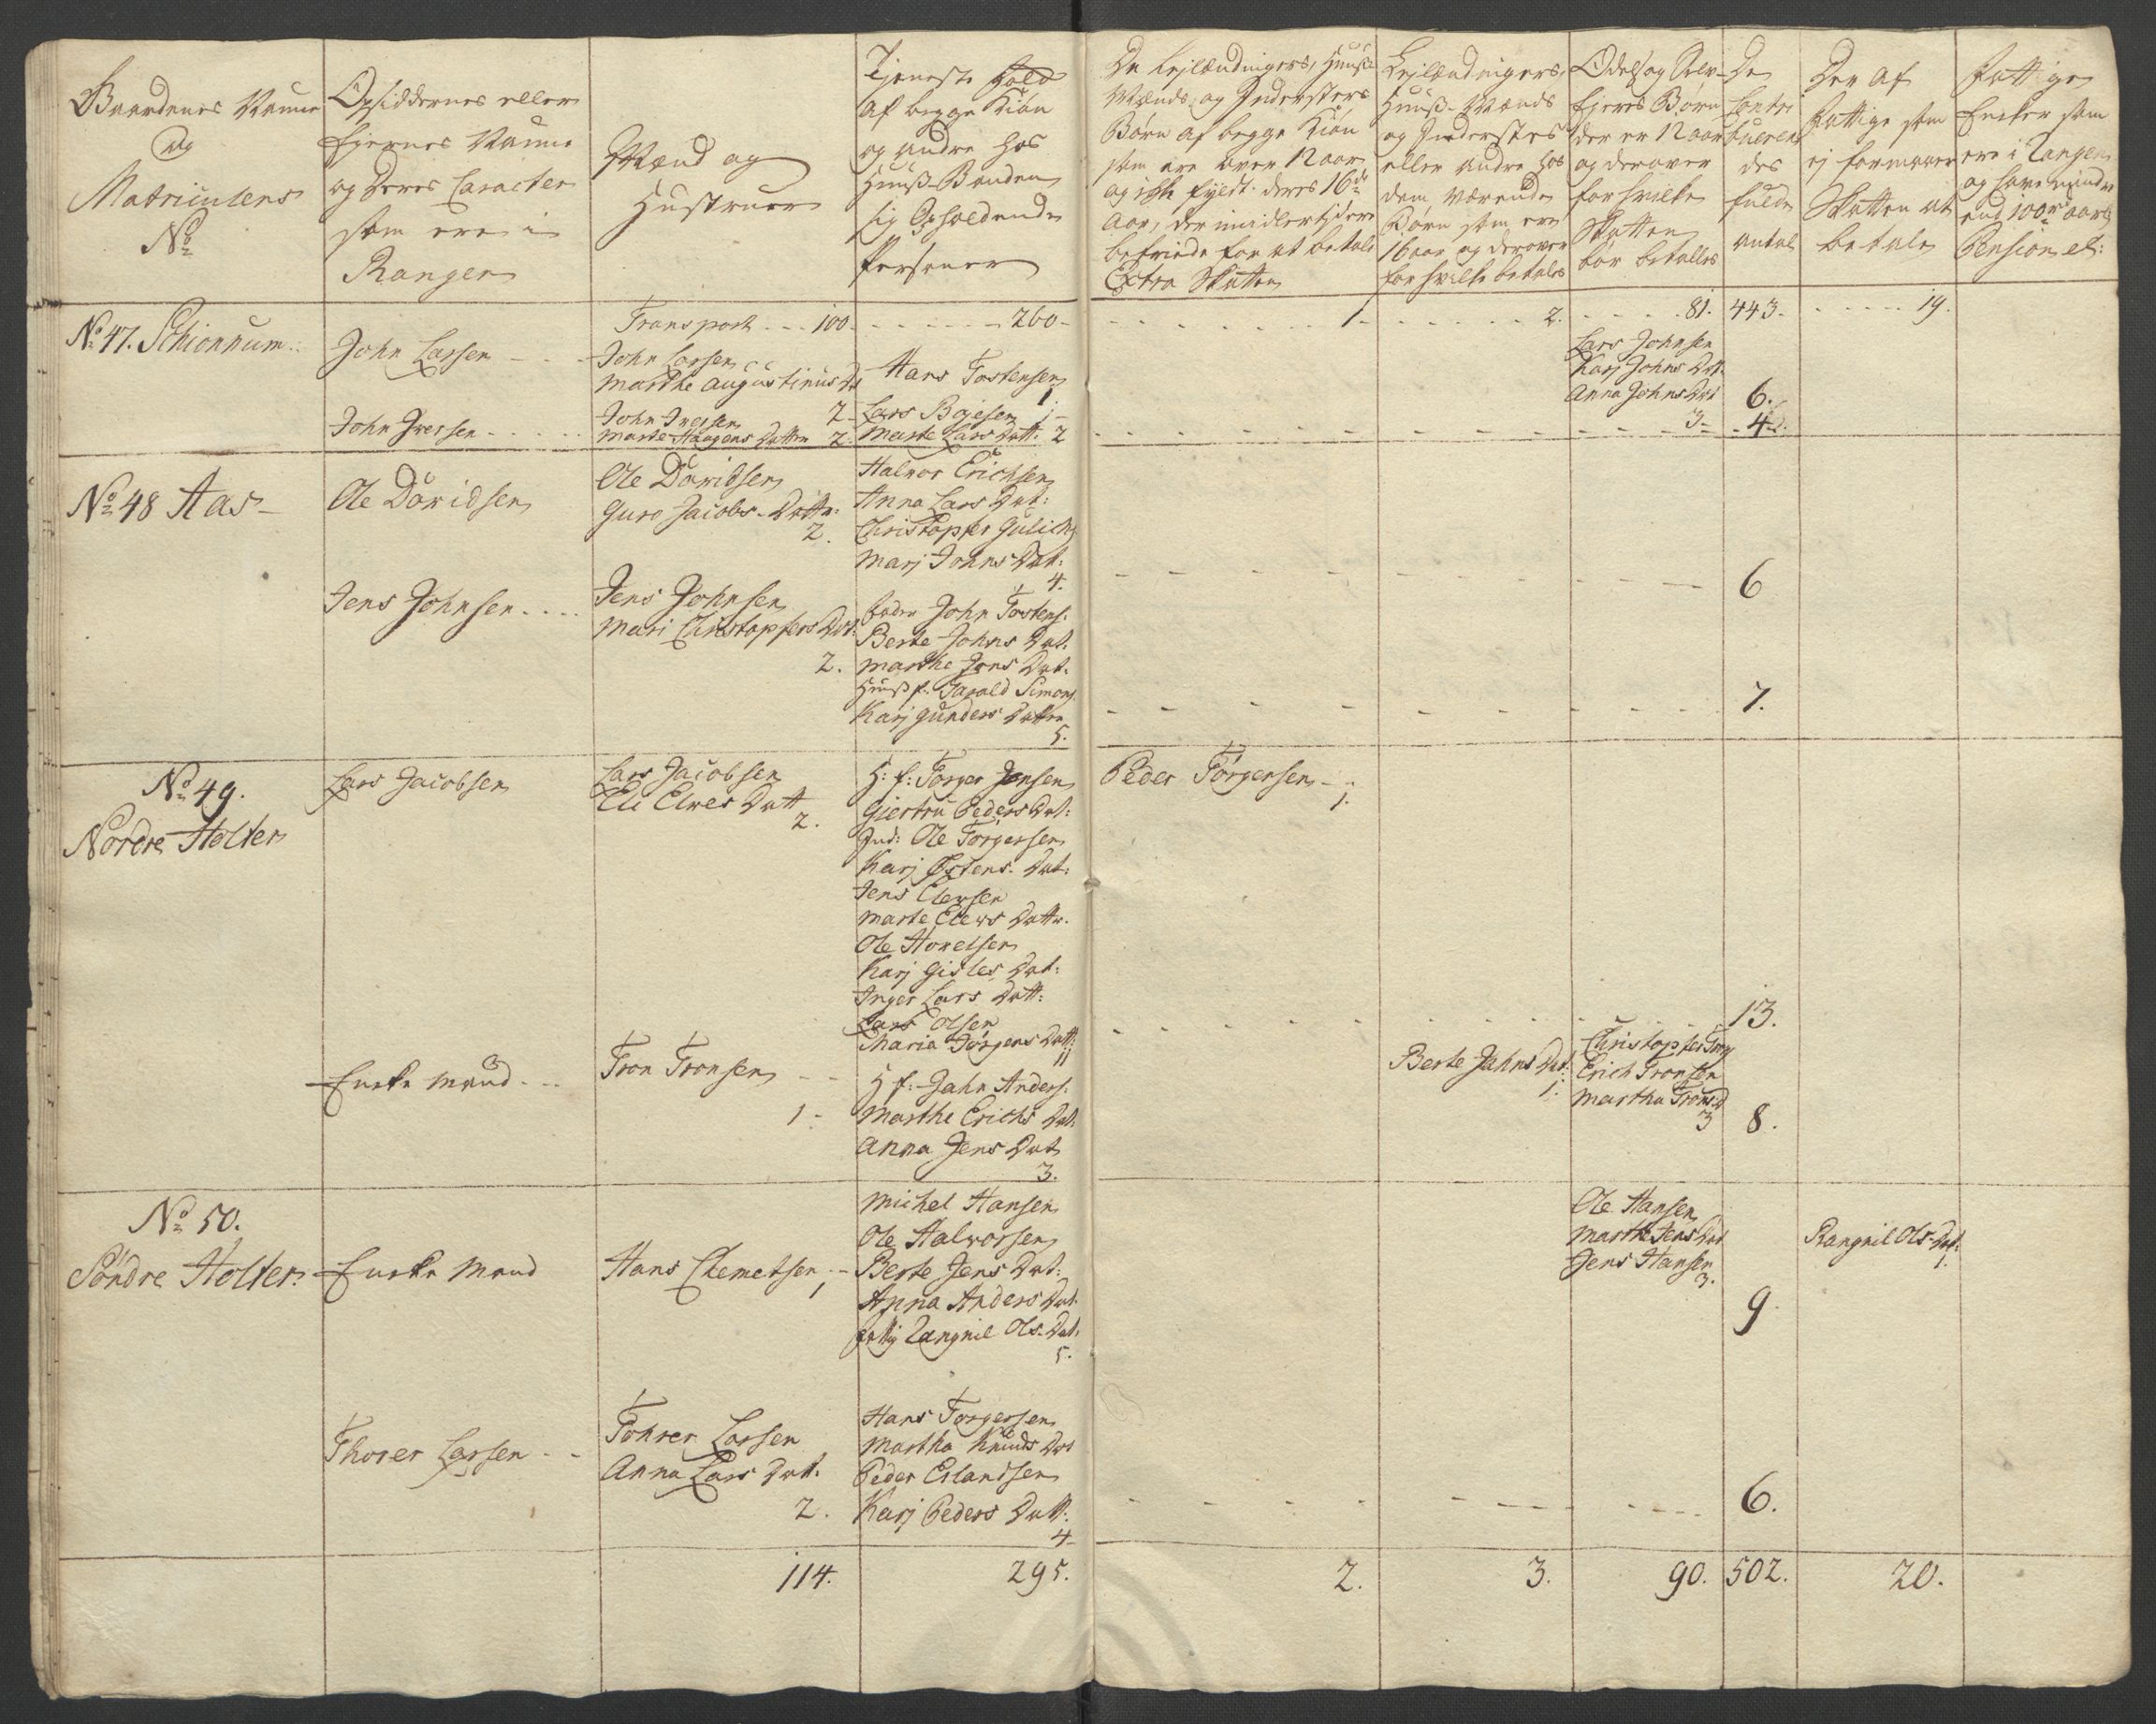 Gaardenes Navne
og
Matriculens
No
Opsiddernes eller
Ejernes Navne
og Deres Caracter
som ere i
Rangen
Mænd og
Hustruer
Tjeneste Folk
af begge Kiøn
og andre hos
Huuß-Bonden
sig Opholdende
Personer
De Lejlændingers, Huuß
Mænds, og Inderster
Børn af begge Kiøn
som ere over 12 aar
og ikke fyldt deres 16de
Aar, der imidlertid ere
befriede for at betale
Extra Skatten
Lejlændingers,
Huuß-Mænds
og Inderstes
eller andre hos
dem, værende
Børn som ere
16 aar og derover
for hvilke betales
Odels og Selv-
Ejeres Børn
der er 12 aar
og derover
for hvilke
Skatten
bør betalles
De
Contri
buerendes
des
fulde
antal
Der af
Fattige som
ej formaaer
Skatten at
betale
Fattige
Encker som
ere i Rangen
og have mindre
end 100 rd aarl
Pension etc:
Transport - - - 100 - - - - - - 260 - - - - - - - 1 - - - - - - 2. - - - - 81. 443. - - - - - 19.
No 47. Schionnum..
John Larsen - - -
John Larsen
Marthe Augustinus Dr
2
Hans Tostensen
1.
Lars Johnsen
Karj Johns Dat.
Anna Johns Dat
3
6.
John Iversen - - - -
John Iversen
Marte Haagens Datter 2.
Lars Bojesen 1 -
Marte Lars Datt: 2
4.
No 48 Aas -
Ole Davidsen
Ole Davidsen
Guro Jacobs - Dattr:
2.
Halvor Erichsen
Anna Lars Dat:
Christopher Gulich
Marj Johns Dat:
4.
6
Jens Johnsen - - - -
Jens Johnsen
Mari Christophers Dat:
2.
John Tostens:
Berte Johns Dat.
Marthe Jens Dat.
Huuß f: Harald Simons
Karj Gunders Datter
5.
7.
No 49.
Nordre Holter
Lars Jacobsen
Lars Jacobsen
Eli Elwes Datt
2.
H: f: Torger Jensen
Giertru Peders Dat:
Ind: Ole Torgersen
Karj Østens. Dat:
Jens Elevsen
Marte Elevs Dattr.
Ole Hovelsen
Karj Gisles Dat:
Inger Lars Datt:
Lars Olsen
Maria Jørgens Datt:
11
Peder Törgersen - -
1.
13.
Encke Mand - - -
Tron Tronsen - -
1 -
H f: Jahn Anders:
Marthe Erichs Dat:
Anna Jens Dat
3.
Berte Jahns Dat:
1.
Christopher Tron
Erich Tronsen
Martha Trons D
3
8.
No 50.
Söndre Holter.
Encke Mand
Hans Clemetsen -
1
Michel Hansen
Ole Halvorsen
Berte Jens Dat:
Anna Anders Dat.
fattig Rangnil Ols. Dat.
5.
Ole Hansen
Marthe Jens Dat
Jens Hansen
3.
9
Rangnil Ols-Dat:
1.
Thorer Larsen - -
Tohrer Larsen
Anna Lars Datt.
2.
Hans Torgersen
Martha Knuds Dat
Peder Erlandsen
Karj Peders Datt.
4
6.
114.
295.
2.
3.
90.
502.
20.